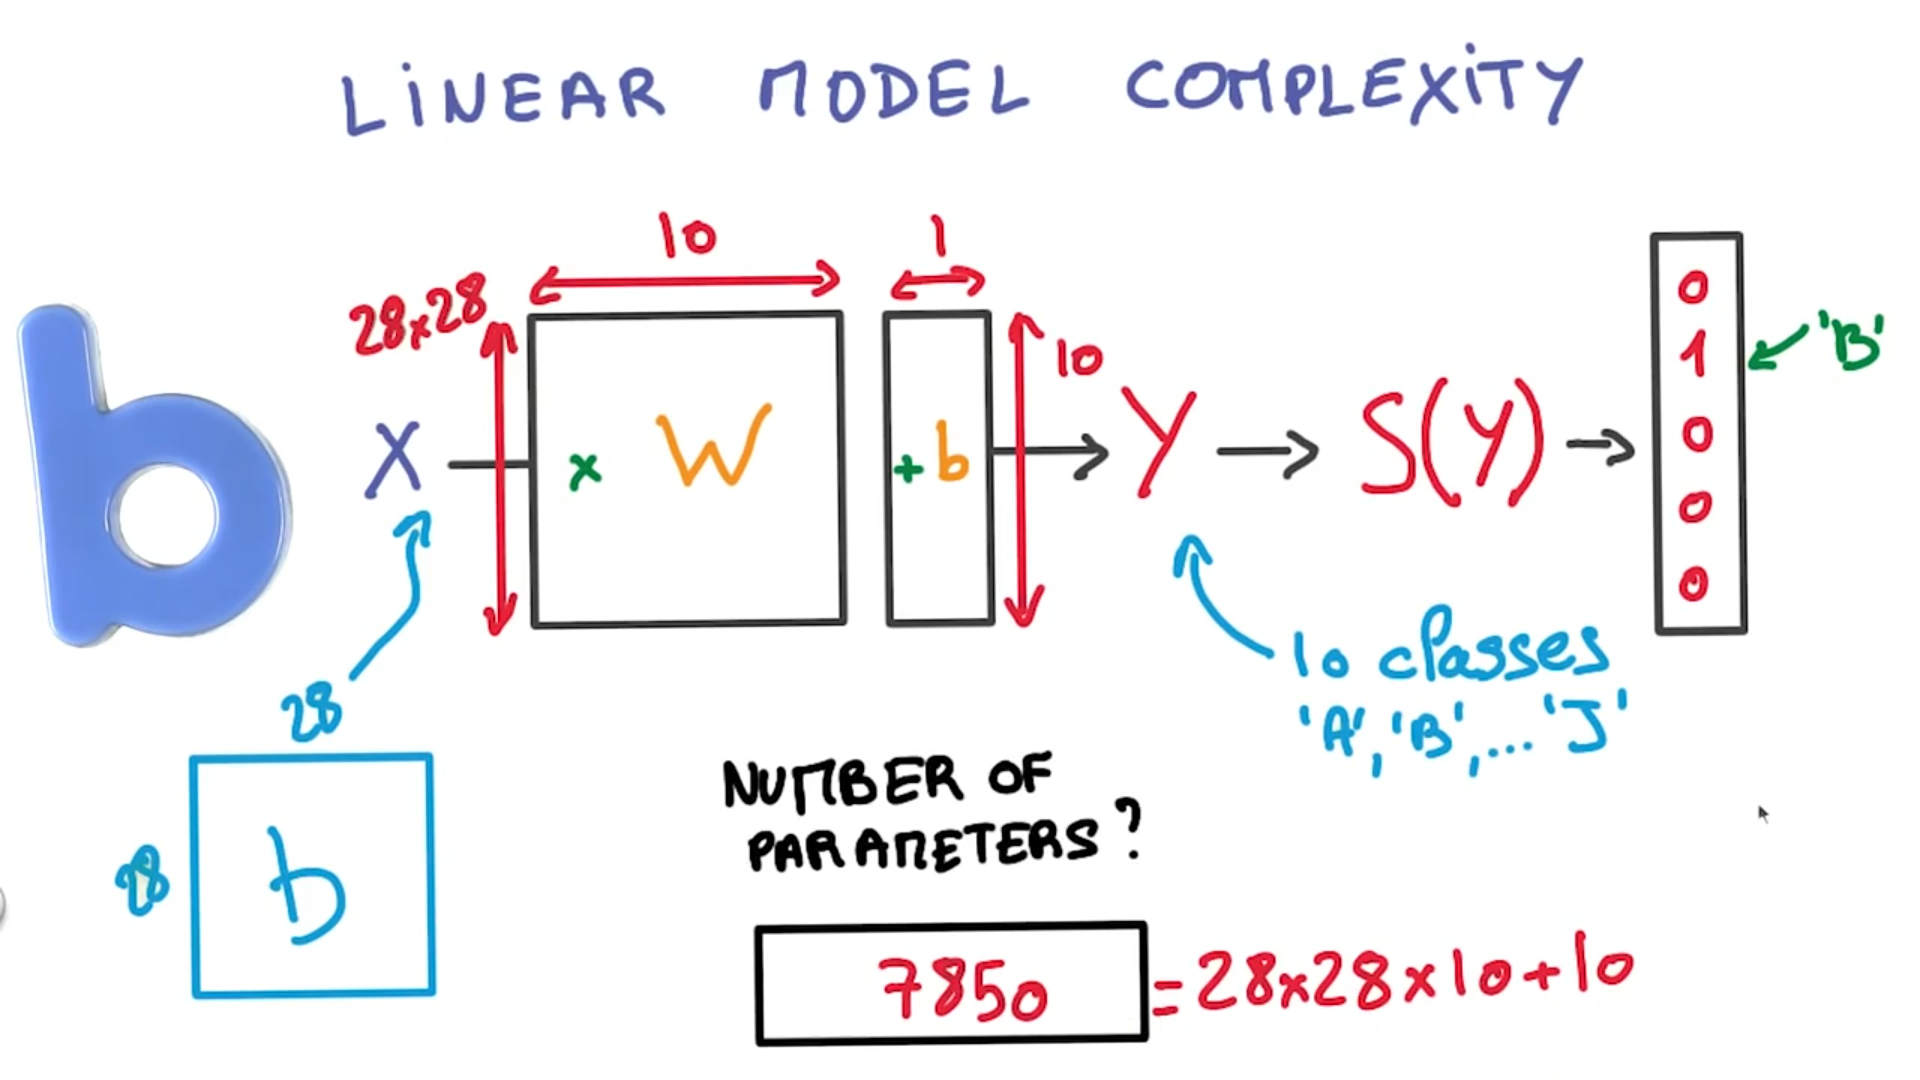 LiNEAR MODEL COMPLEXiTY
10
1
28x28
10
X
x W
+ b
Y
S(Y)
0
1
0
0
0
'B'
28
28
b
10 classes
'A', 'B', ... 'J'
NUMBER OF
PARAMETERS?
7850 = 28x28x10+10
b